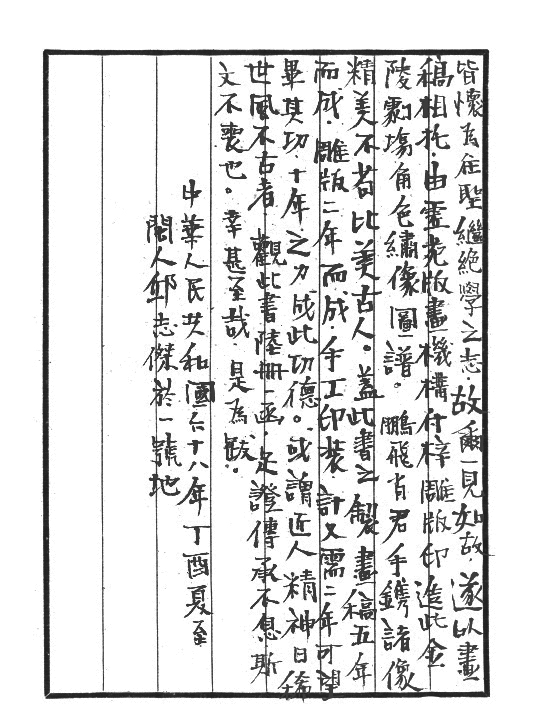 皆懷為往聖繼絕學之志.故爾一見如故.遂以畫
稿相托.由靈光版畫機構付梓雕版印造此金
陵劇場角色繡像圖譜。鵬飛肖君手鐫諸像
精美不若比美古人。蓋此書之製畫稿五年
而成.雕版二年而成.手工印裝.計又需二年可望
畢其功.十年之力成此功德。或謂近人精神日稀
世風不古者.觀此書陸冊一函.足證傳承不息斯
文不喪也。幸甚至哉.是為跋.
中華人民共和國六十八年丁酉夏至
閩人邱志傑於一號地